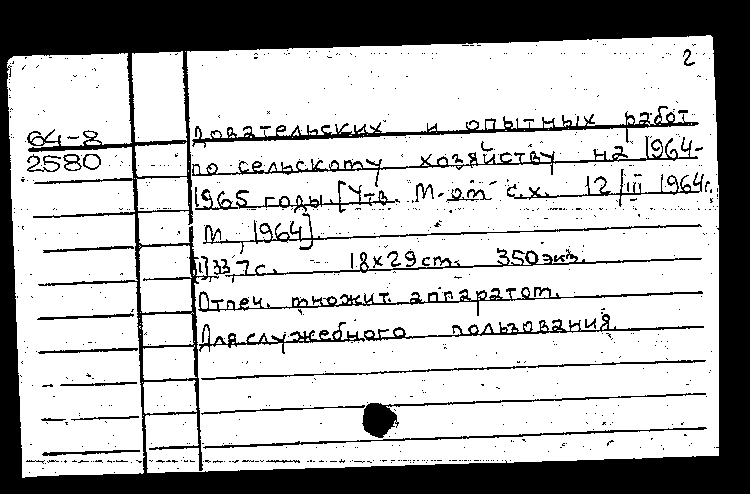 2
64-8
2580
довательских и опытных работ
по сельскому хозяйству на 1964-
1965 годы. [Утв. М-ом с.х. 12/III 1964г.
М., 1964].
33, 7 с. 18x29 см. 350 экз.
Отпеч. множит. аппаратом.
Для служебного пользования.